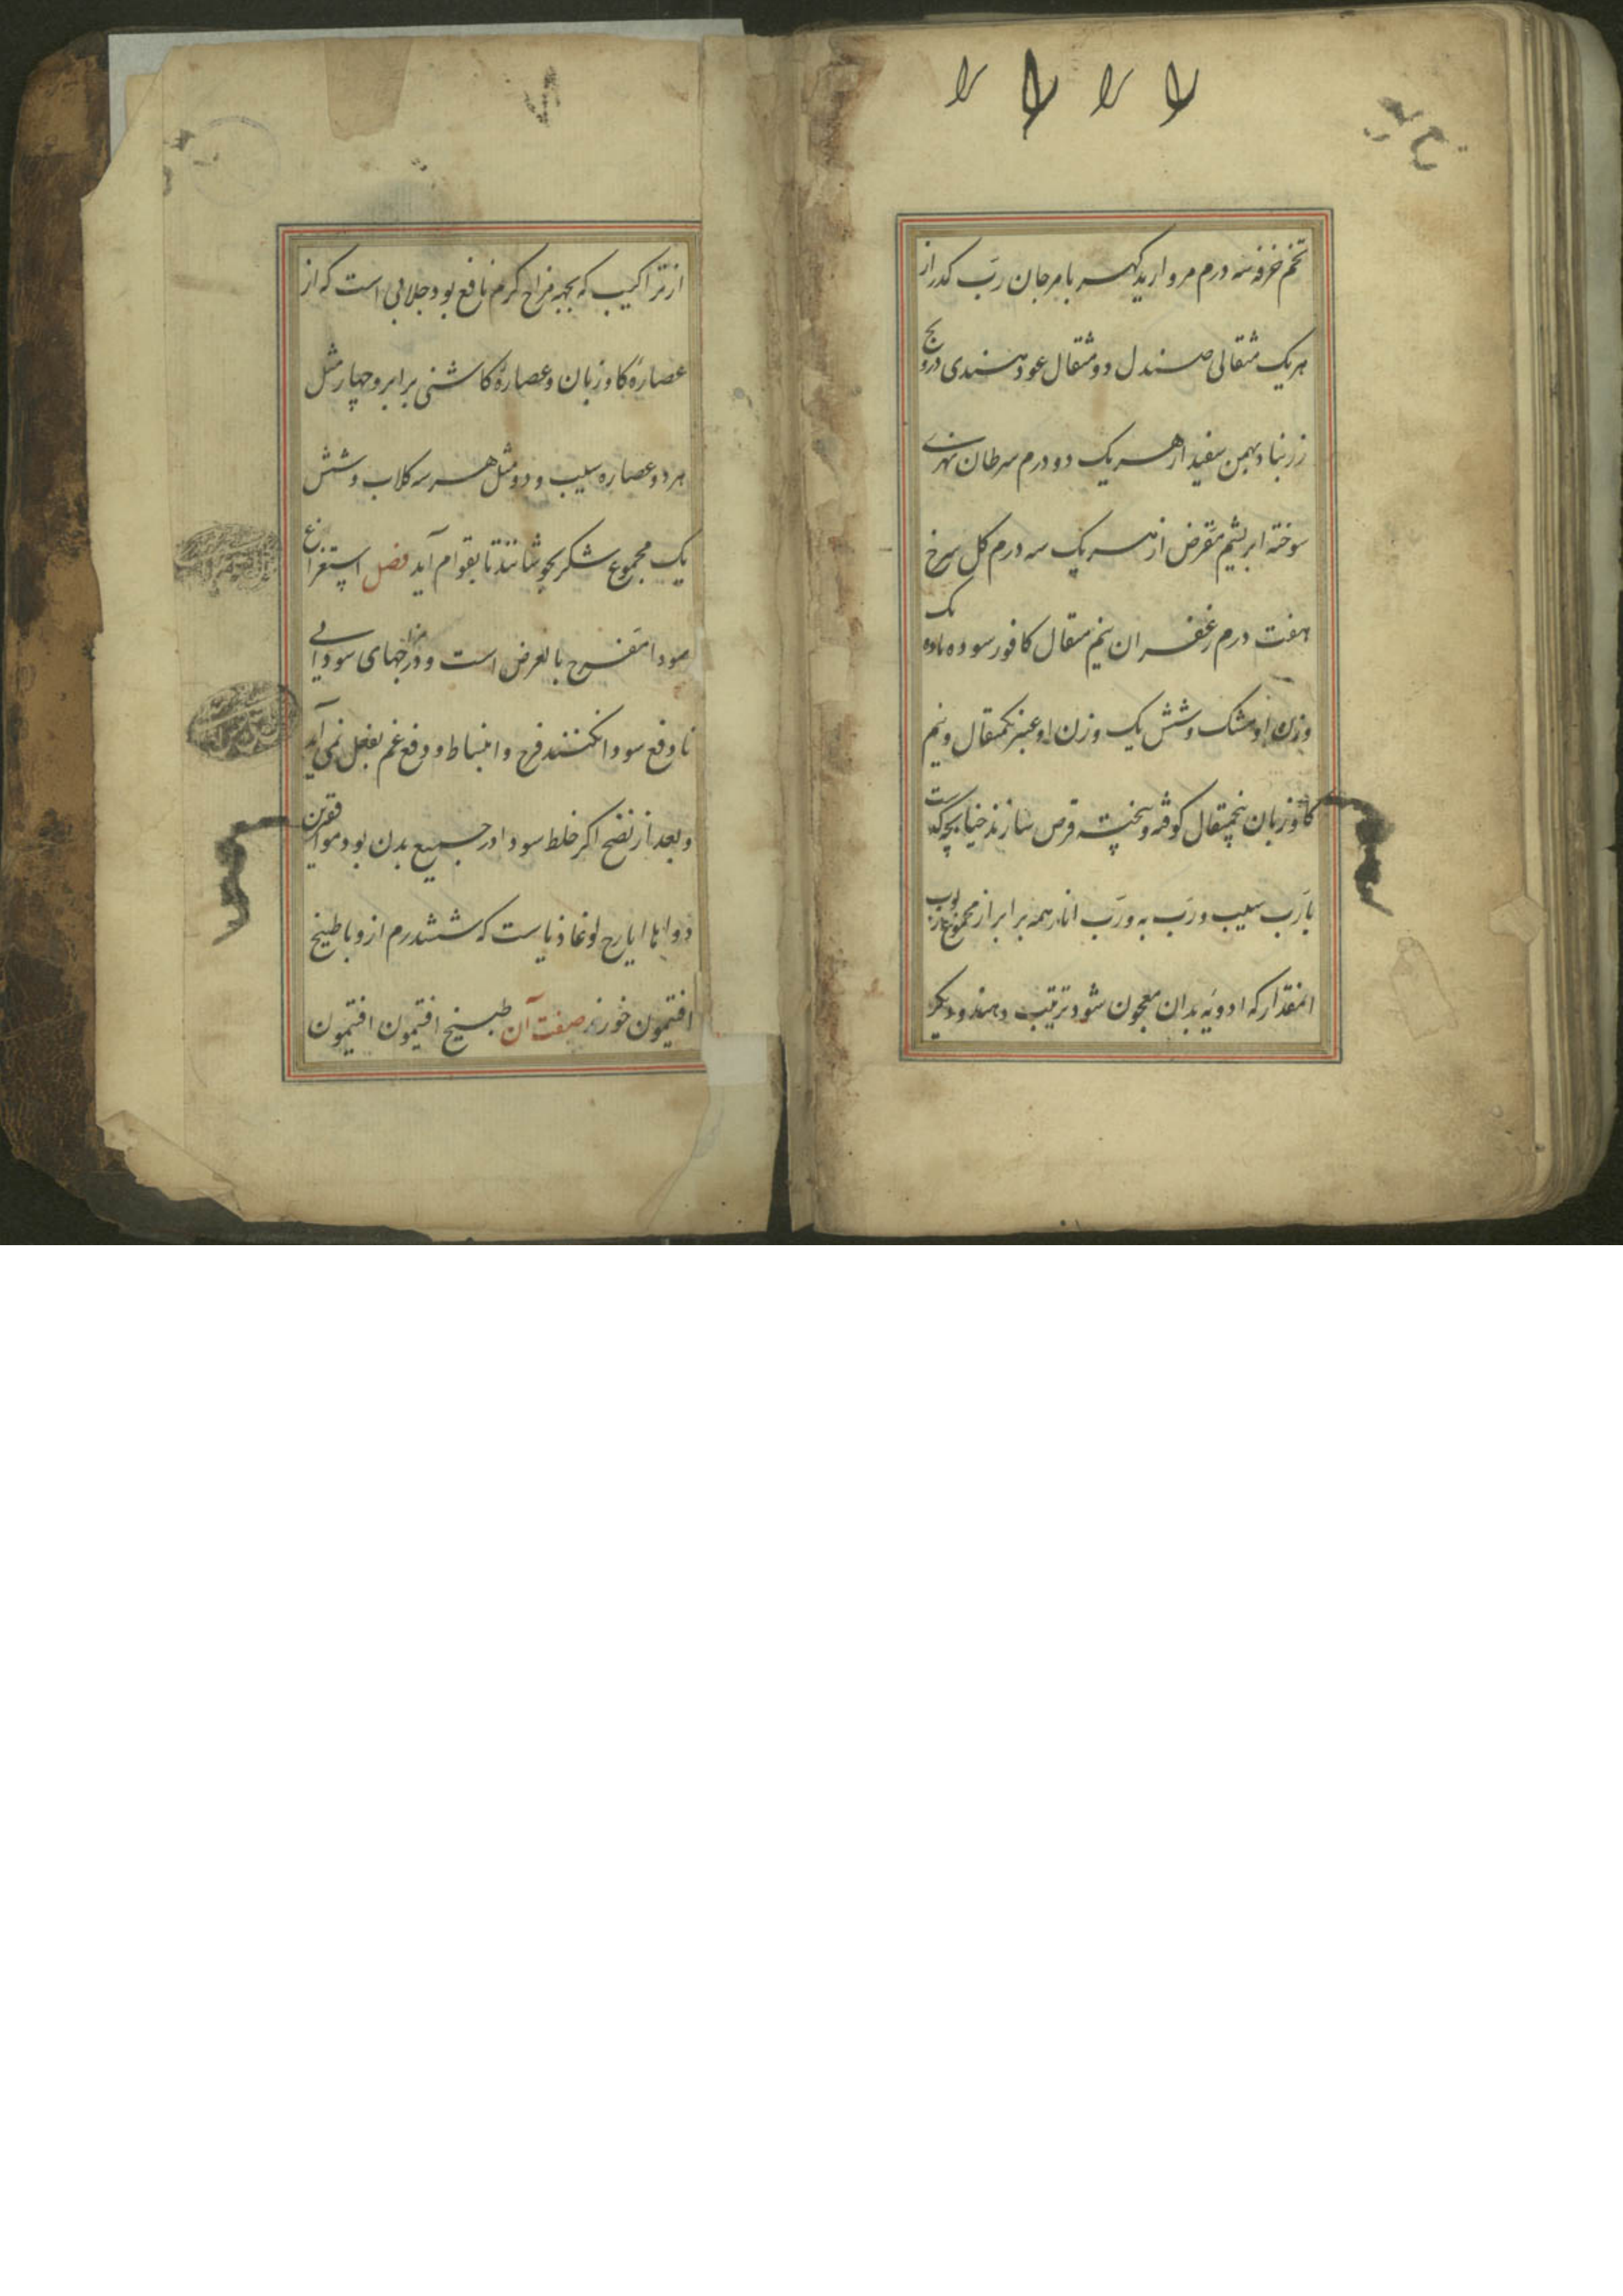 لا لا لا لا
تخم خرفه سه درم مروارید کهربا مرجان رب کدر از
هریک مثقالی صندل دو مثقال عود هندی درونج
زرنباد بهمن سفید از هریک دو درم سرطان نهری
سوخته ابریشم مقرض از هریک سه درم کل سرخ
هفت درم زعفران نیم مثقال کافور سوده
وزن او مشک و شش یک وزن او عنبر یکمثقال و نیم
کاوزبان پنجمثقال کوفته و پخته قرص سازند چنانچه
با رب سیب و رب به و رب انار همه برابر از مجموع
انمقدار که ادویه بدان معجون شود ترتیب دهند و دیکر
از تراکیب که بجهه مزاج کرم نافع بود جلابی است که از
عصارۀ کاوزبان و عصارۀ کاشنی برابر و چهار مثل
هر دو عصاره سیب و دو مثل هر سه کلاب و شش
یک مجموع شکر بجوشانند تا بقوام آید فصل استفراغ
سودا مفرح بالعرض است و در مزاجهای سودایی
تا دفع سودا نکنند فرح و انبساط و دفع غم بفعل نمی آید
و بعد از نضج اکر خلط سودا در جمیع بدن بود موافقترین
دواها ایارج لوغاذیا است که ششدرم ازو با طبیخ
افتیمون خورند صفت آن طبیخ افتیمون افتیمون